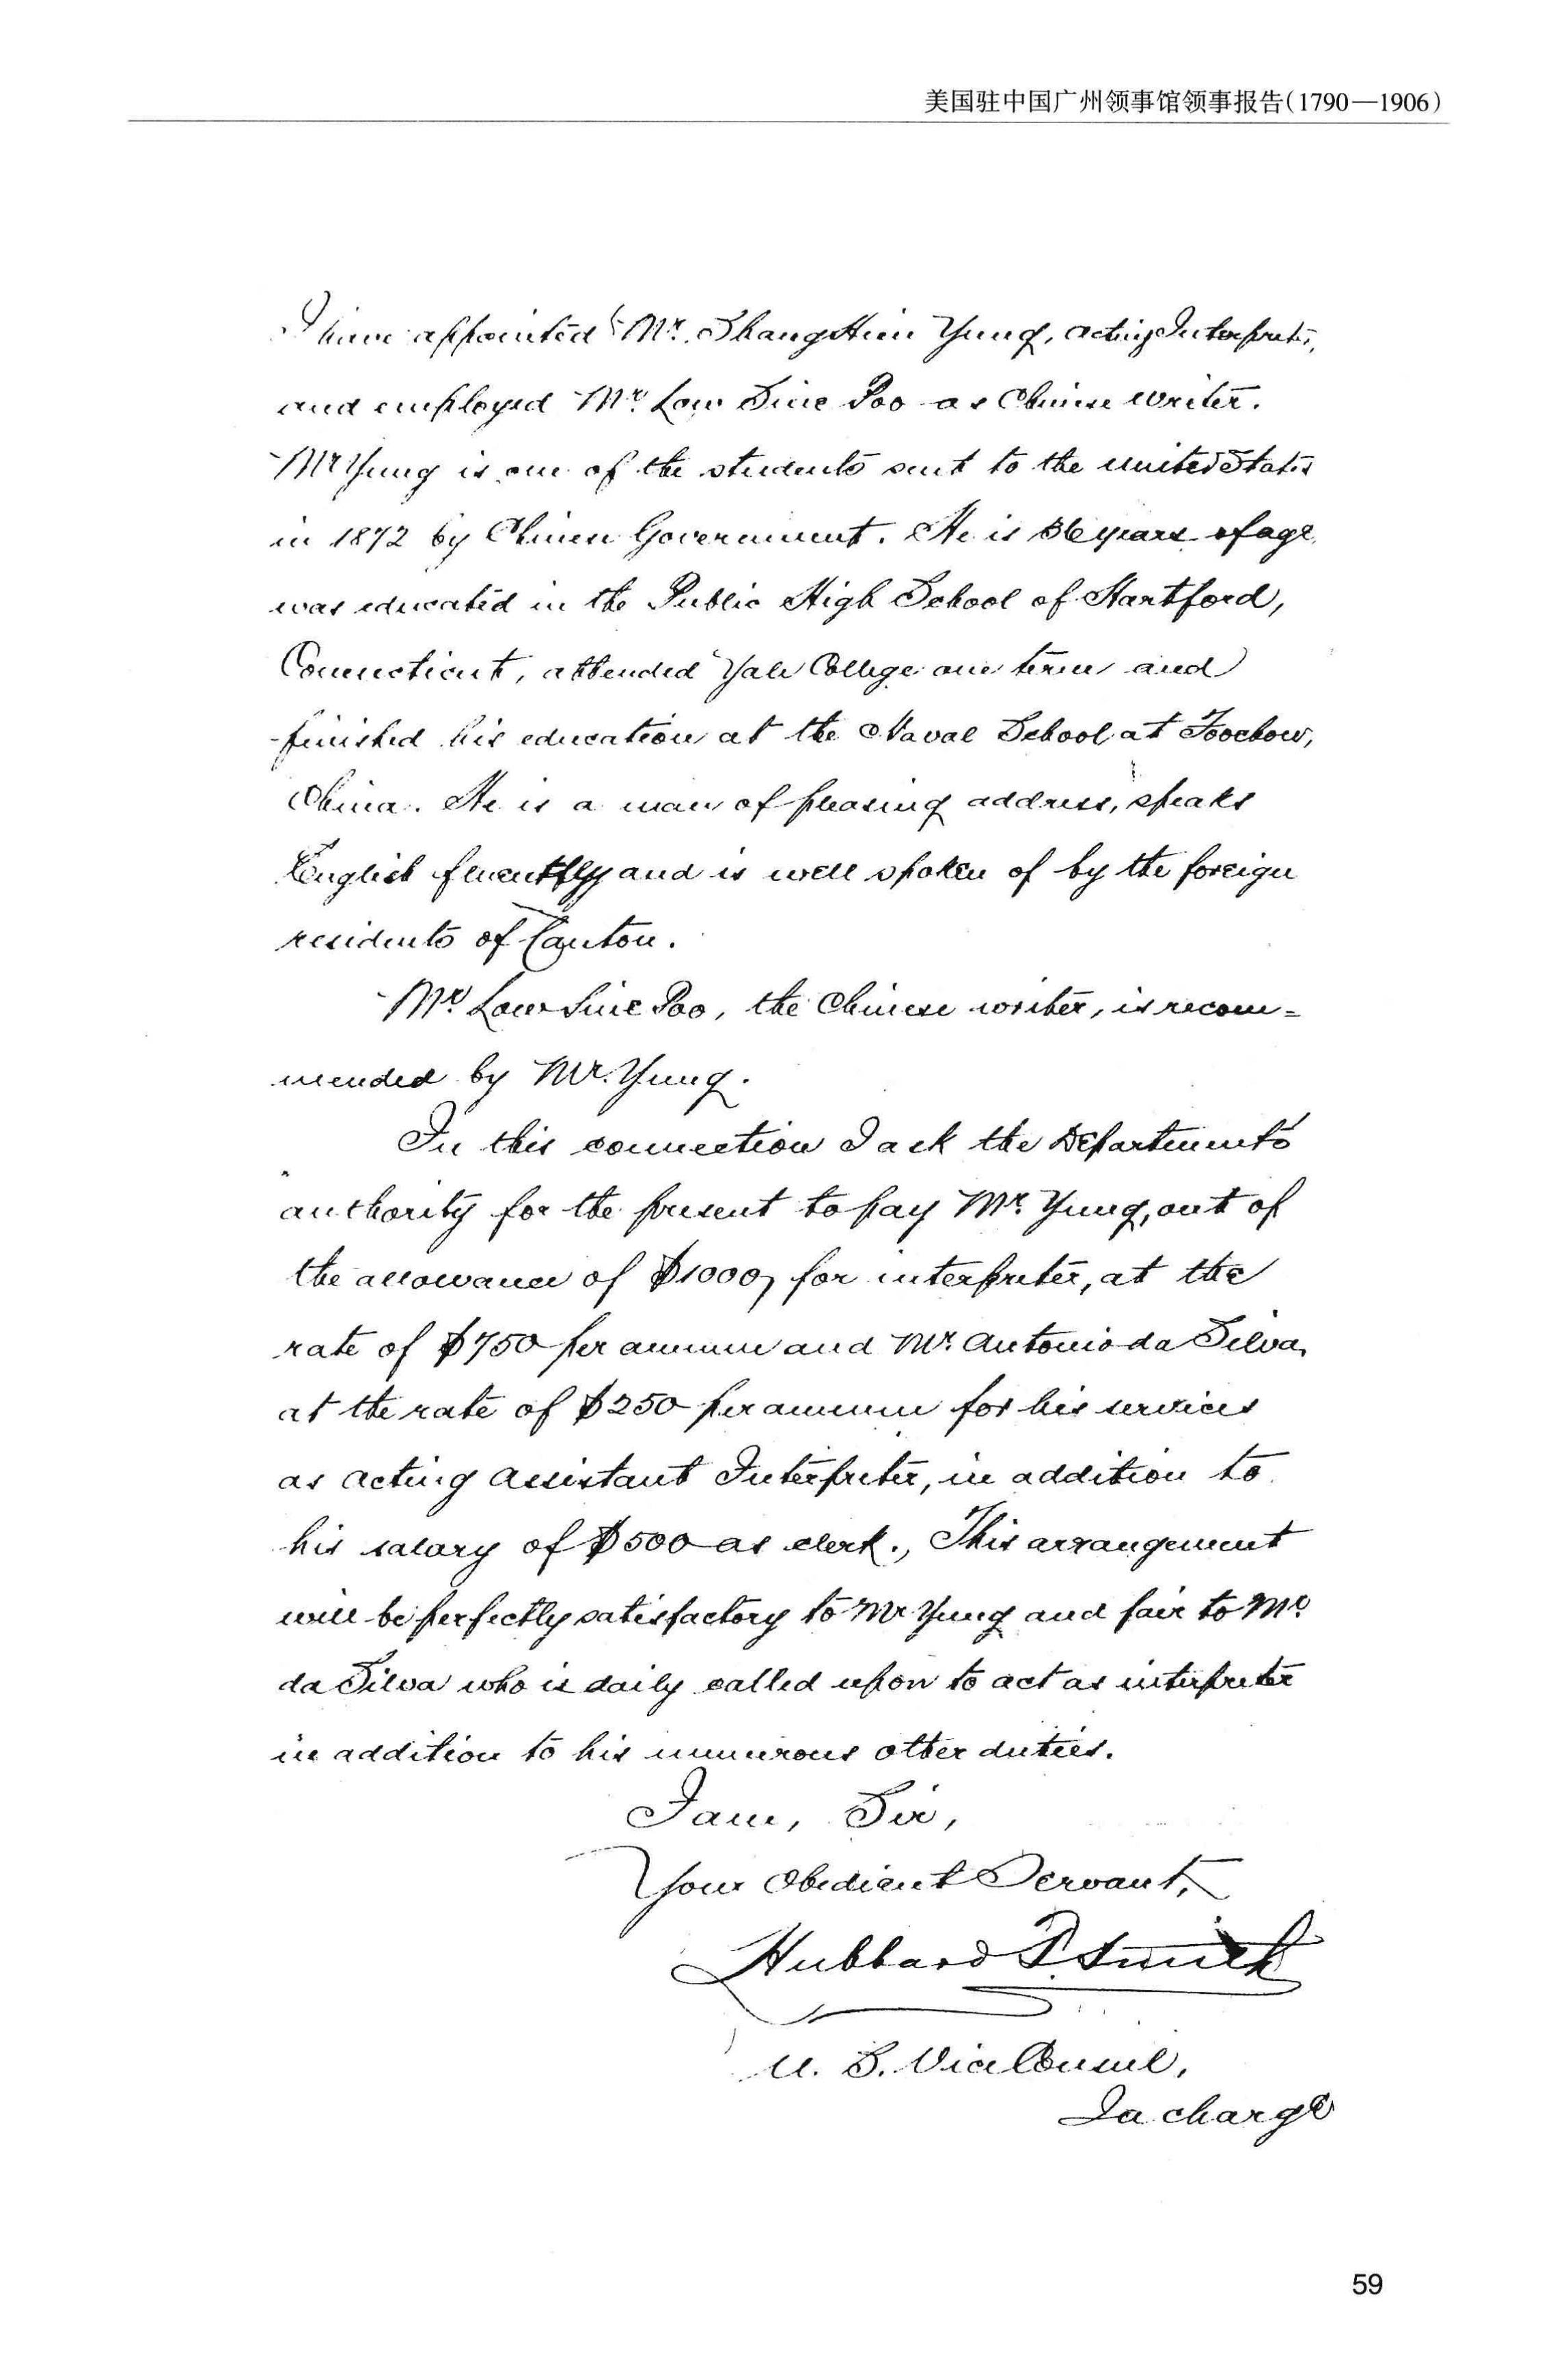 美国驻中国广州领事馆领事报告(1790—1906)
I have appointed Mr. Shang Hien Yung, acting Interpreter,
and employed Mr. Low Sine Poo as Chinese writer.
Mr Yung is one of the students sent to the United States
in 1872 by Chinese Government. He is 36 years of age,
was educated in the Public High School of Hartford,
Connecticut, attended Yale College one term and
finished his education at the Naval School at Foochow,
China. He is a man of pleasing address, speaks
English fluently and is well spoken of by the foreign
residents of Canton.
Mr Low Sine Poo, the Chinese writer, is recom-
mended by Mr. Yung.
In this connection I ask the Departments
authority for the present to pay Mr. Yung, out of
the allowance of $1000, for interpreter, at the
rate of $750 per annum and Mr. Antonio da Silva,
at the rate of $250 per annum for his services
as acting assistant Interpreter, in addition to
his salary of $500 as clerk., This arrangement
will be perfectly satisfactory to Mr Yung and fair to Mr
da Silva who is daily called upon to act as interpreter
in addition to his numerous other duties.
I am, Sir,
Your Obedient Servant,
Hubbard T. Smith
U. S. Vice Consul,
In charge
59